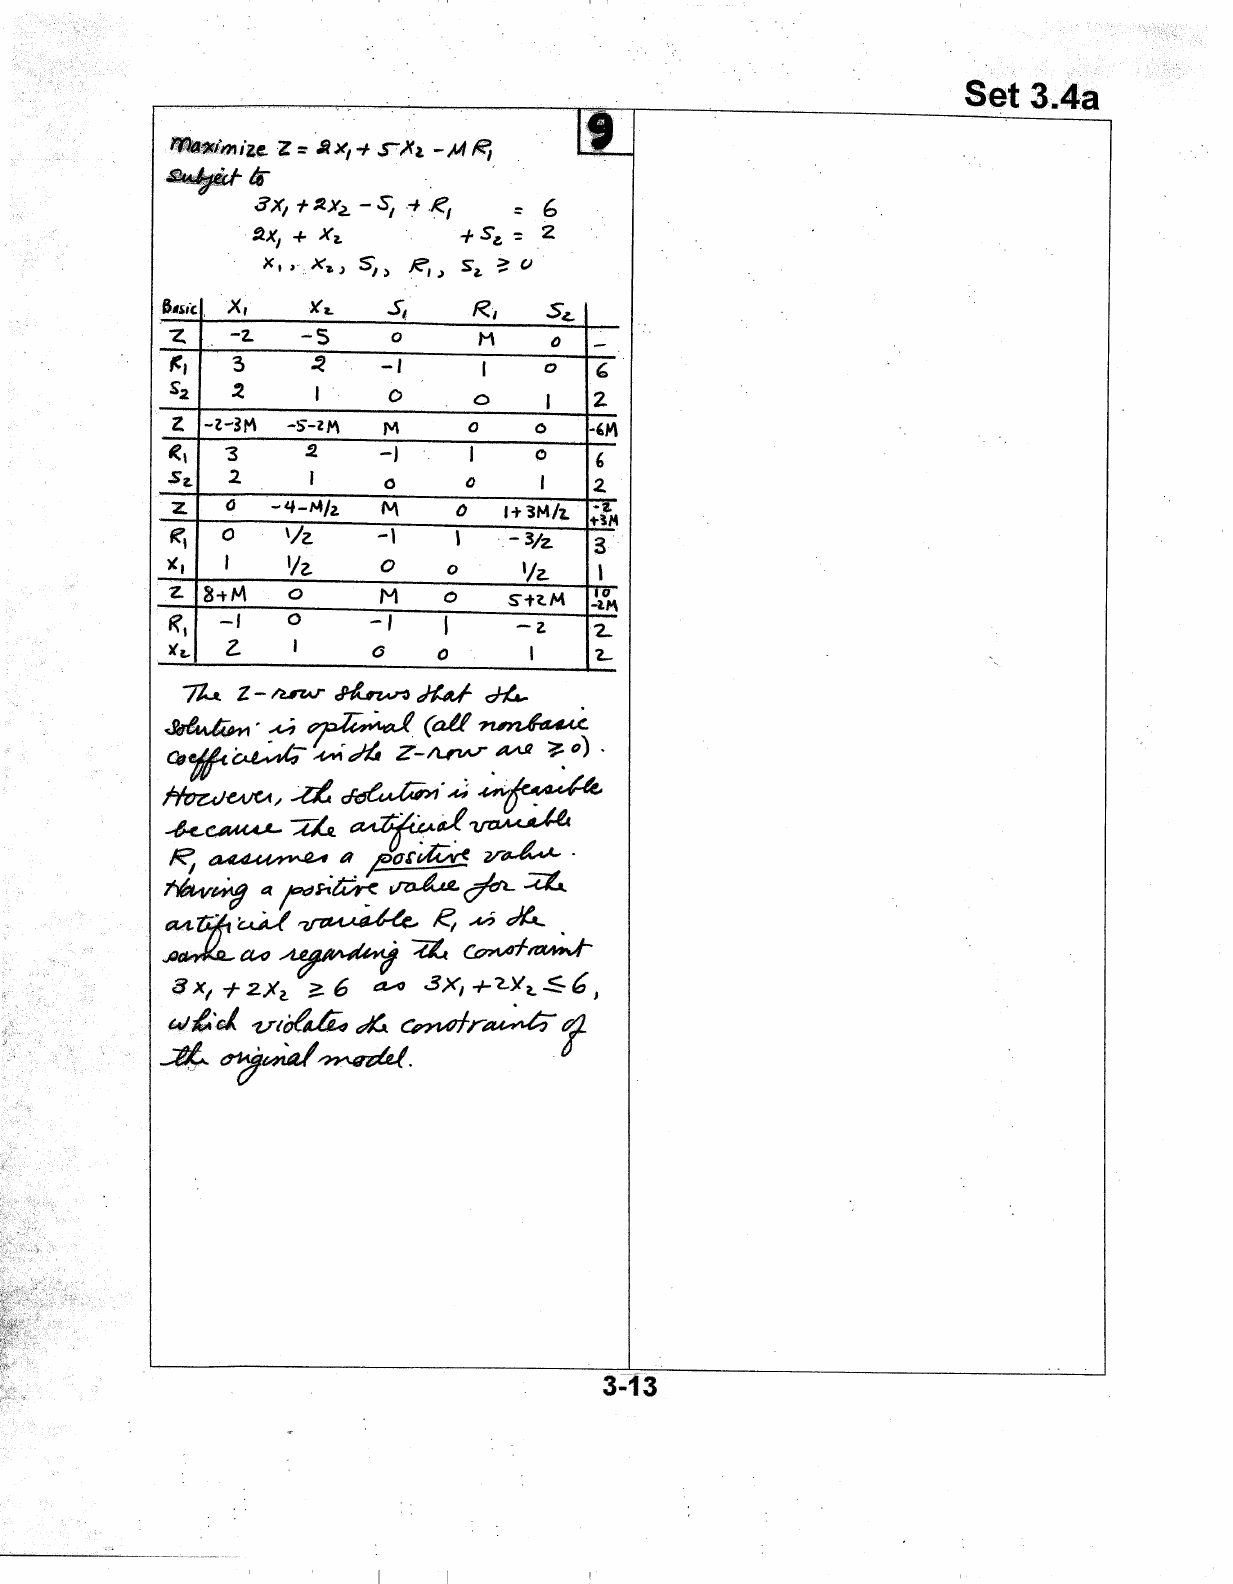 Set 3.4a
9
Maximize Z = 2X₁ + 5X₂ - MR₁
Subject to
3X₁ + 2X₂ - S₁ + R₁ = 6
2X₁ + X₂ + S₂ = 2
X₁, X₂, S₁, R₁, S₂ ≥ 0
Basic X₁ X₂ S₁ R₁ S₂
Z -2 -5 0 M 0 -
R₁ 3 2 -1 1 0 6
S₂ 2 1 0 0 1 2
Z -2-3M -5-2M M 0 0 -6M
R₁ 3 2 -1 1 0 6
S₂ 2 1 0 0 1 2
Z 0 -4-M/2 M 0 1+3M/2 -2+3M
R₁ 0 1/2 -1 1 -3/2 3
X₁ 1 1/2 0 0 1/2 1
Z 8+M 0 M 0 5+2M 10-2M
R₁ -1 0 -1 1 -2 2
X₂ 2 1 0 0 1 2
The Z-row shows that the
solution is optimal (all nonbasic
coefficients in the Z-row are ≥ 0).
However, the solution is infeasible
because the artificial variable
R₁ assumes a positive value.
Having a positive value for the
artificial variable R₁ is the
same as regarding the constraint
3X₁ + 2X₂ ≥ 6 as 3X₁ + 2X₂ ≤ 6,
which violates the constraints of
the original model.
3-13